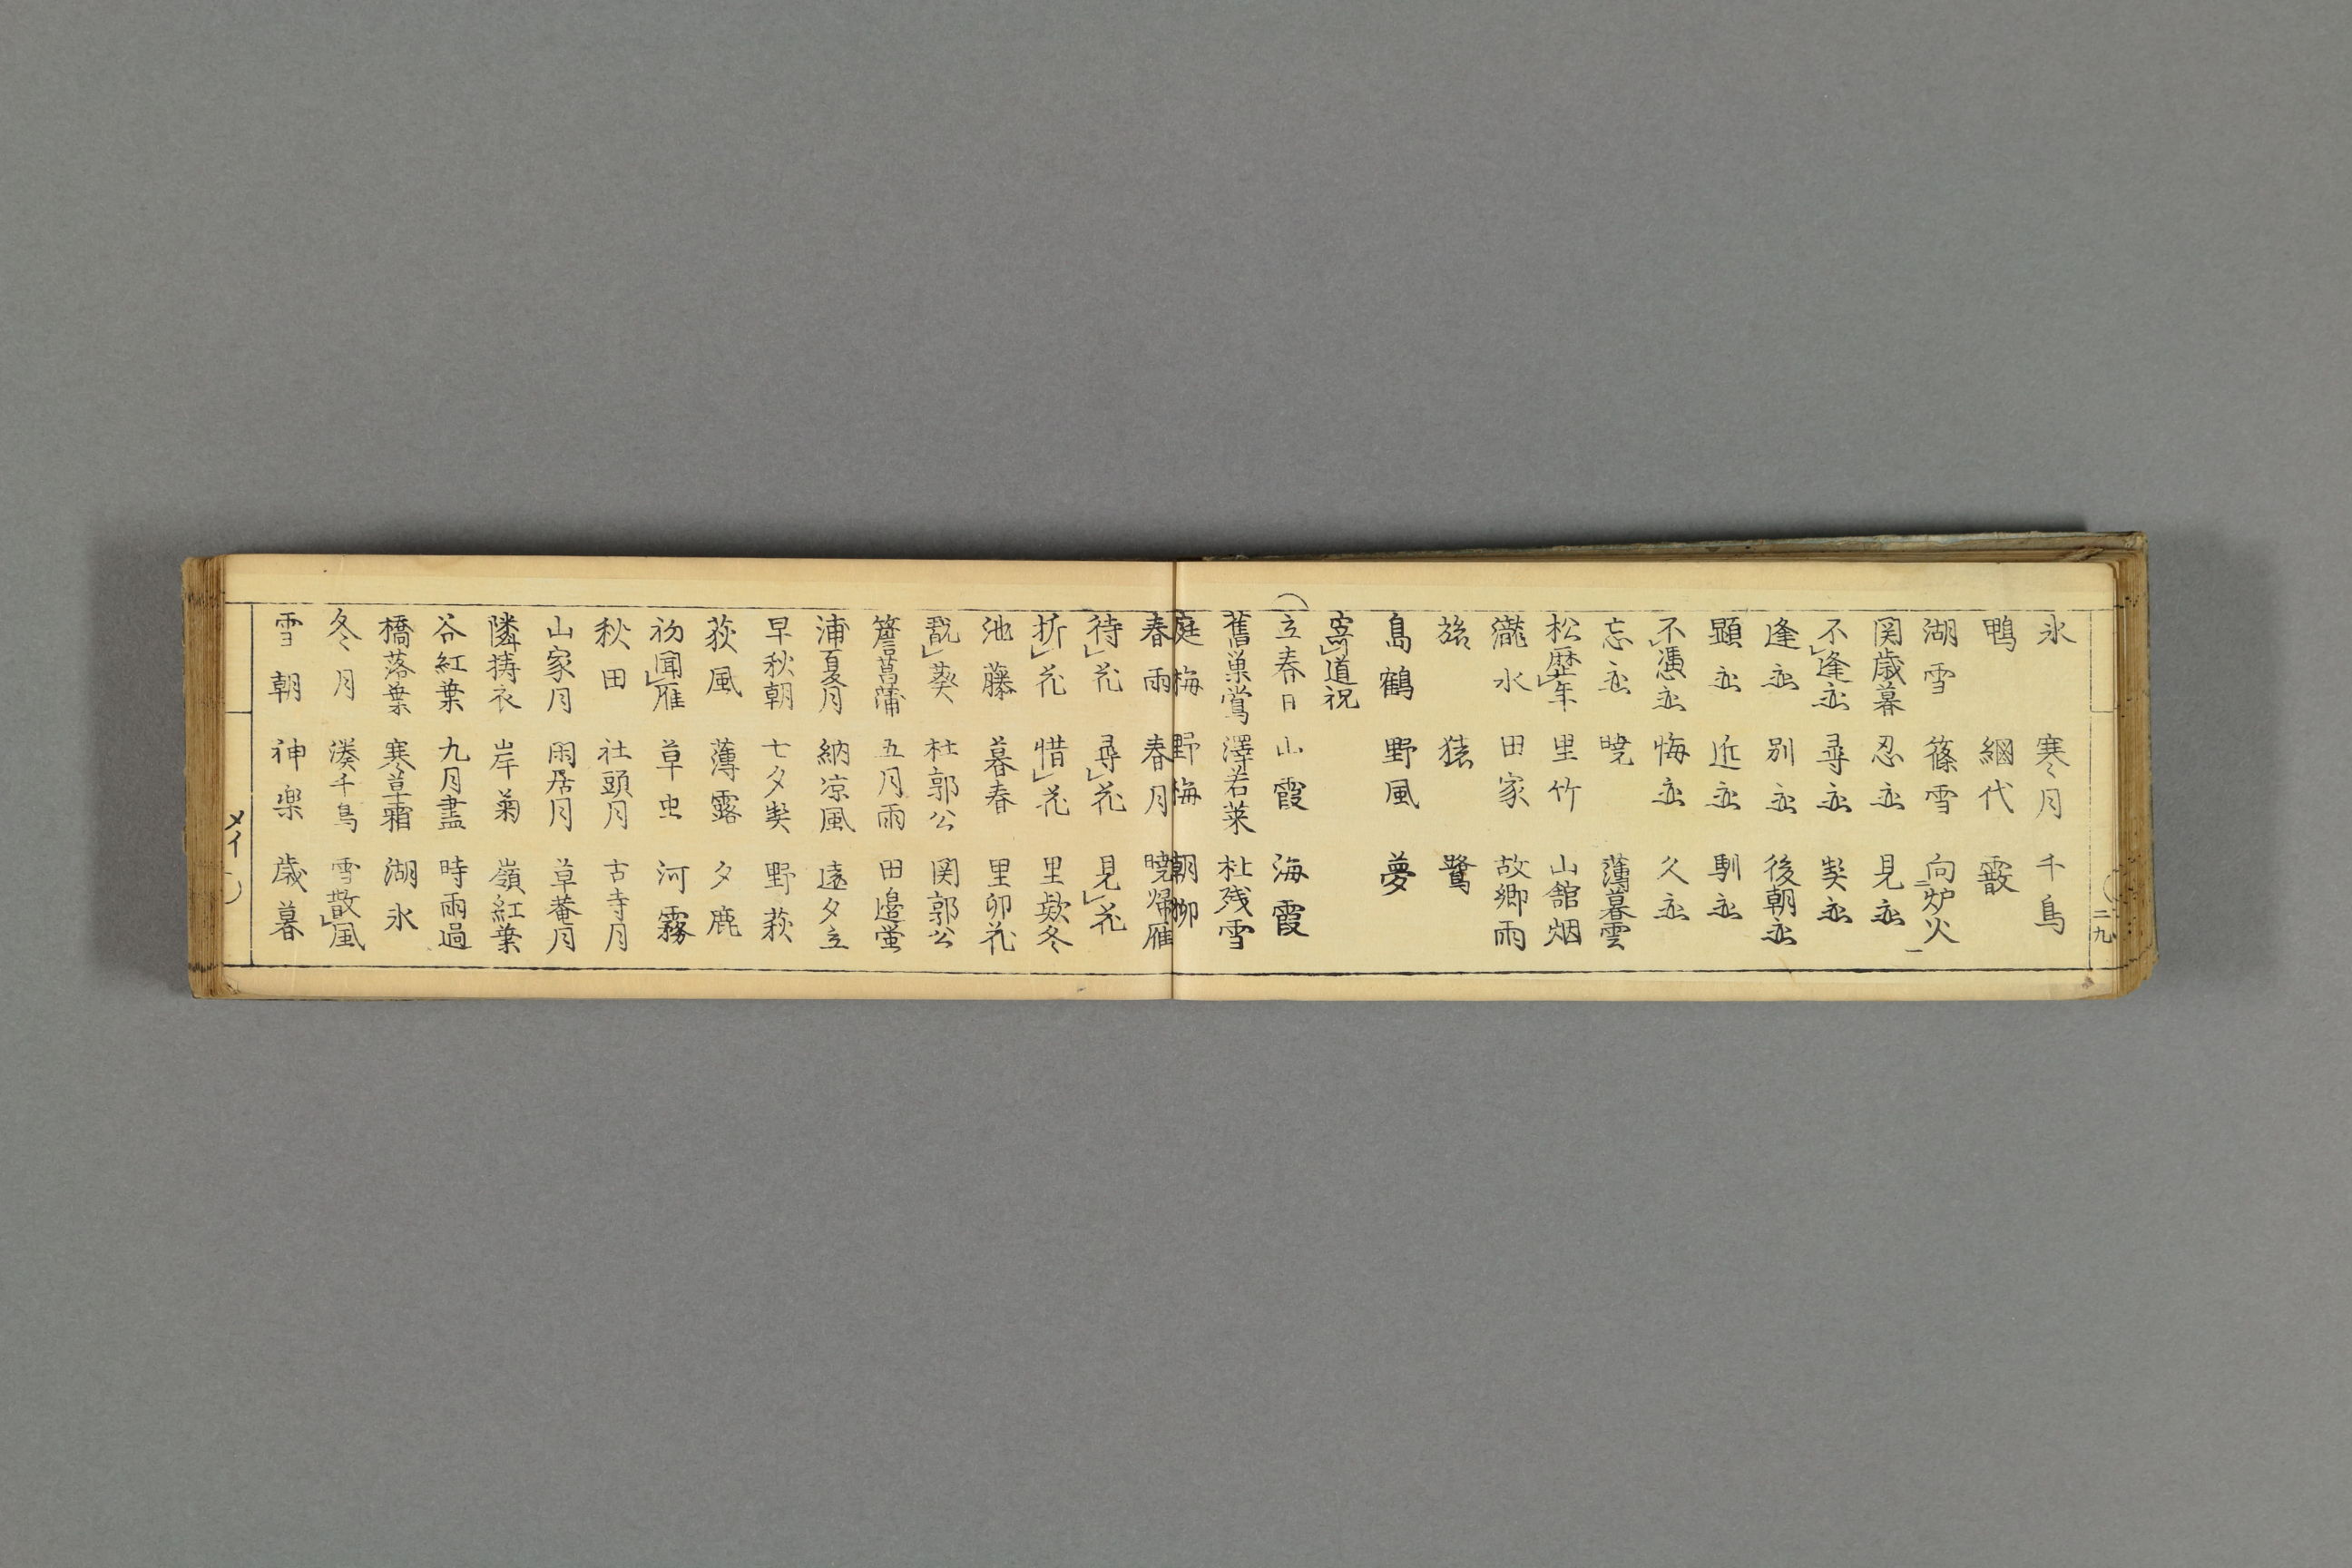 二九
氷 寒月 千鳥
鴨 網代 霰
湖雪 篠雪 向炉火
関歳暮 忍恋 見恋
不逢恋 尋恋 契恋
逢恋 別恋 後朝恋
顕恋 近恋 馴恋
不憑恋 悔恋 久恋
忘恋 暁 薄暮雲
松歴年 里竹 山舘烟
瀧水 田家 故郷雨
猿 鷺
島鶴 野風 夢
寄道祝
立春日 山霞 海霞
舊巣鴬 澤若菜 杜残雪
庭梅 野梅 朝柳
春雨 春月 暁帰雁
待花 尋花 見花
折花 惜花 里款冬
池藤 暮春 里卯花
翫葵 杜郭公 関郭公
簷菖蒲 五月雨 田邉蛍
浦夏月 納凉風 遠夕立
早秋朝 七夕契 野萩
荻風 薄露 夕鹿
初聞雁 草虫 河霧
秋田 社頭月 古寺月
山家月 閑居月 草菴月
隣擣衣 岸菊 嶺紅葉
谷紅葉 九月盡 時雨過
橋落葉 寒草霜 湖氷
冬月 湊千鳥 雪散風
雪朝 神楽 歳暮
メイ